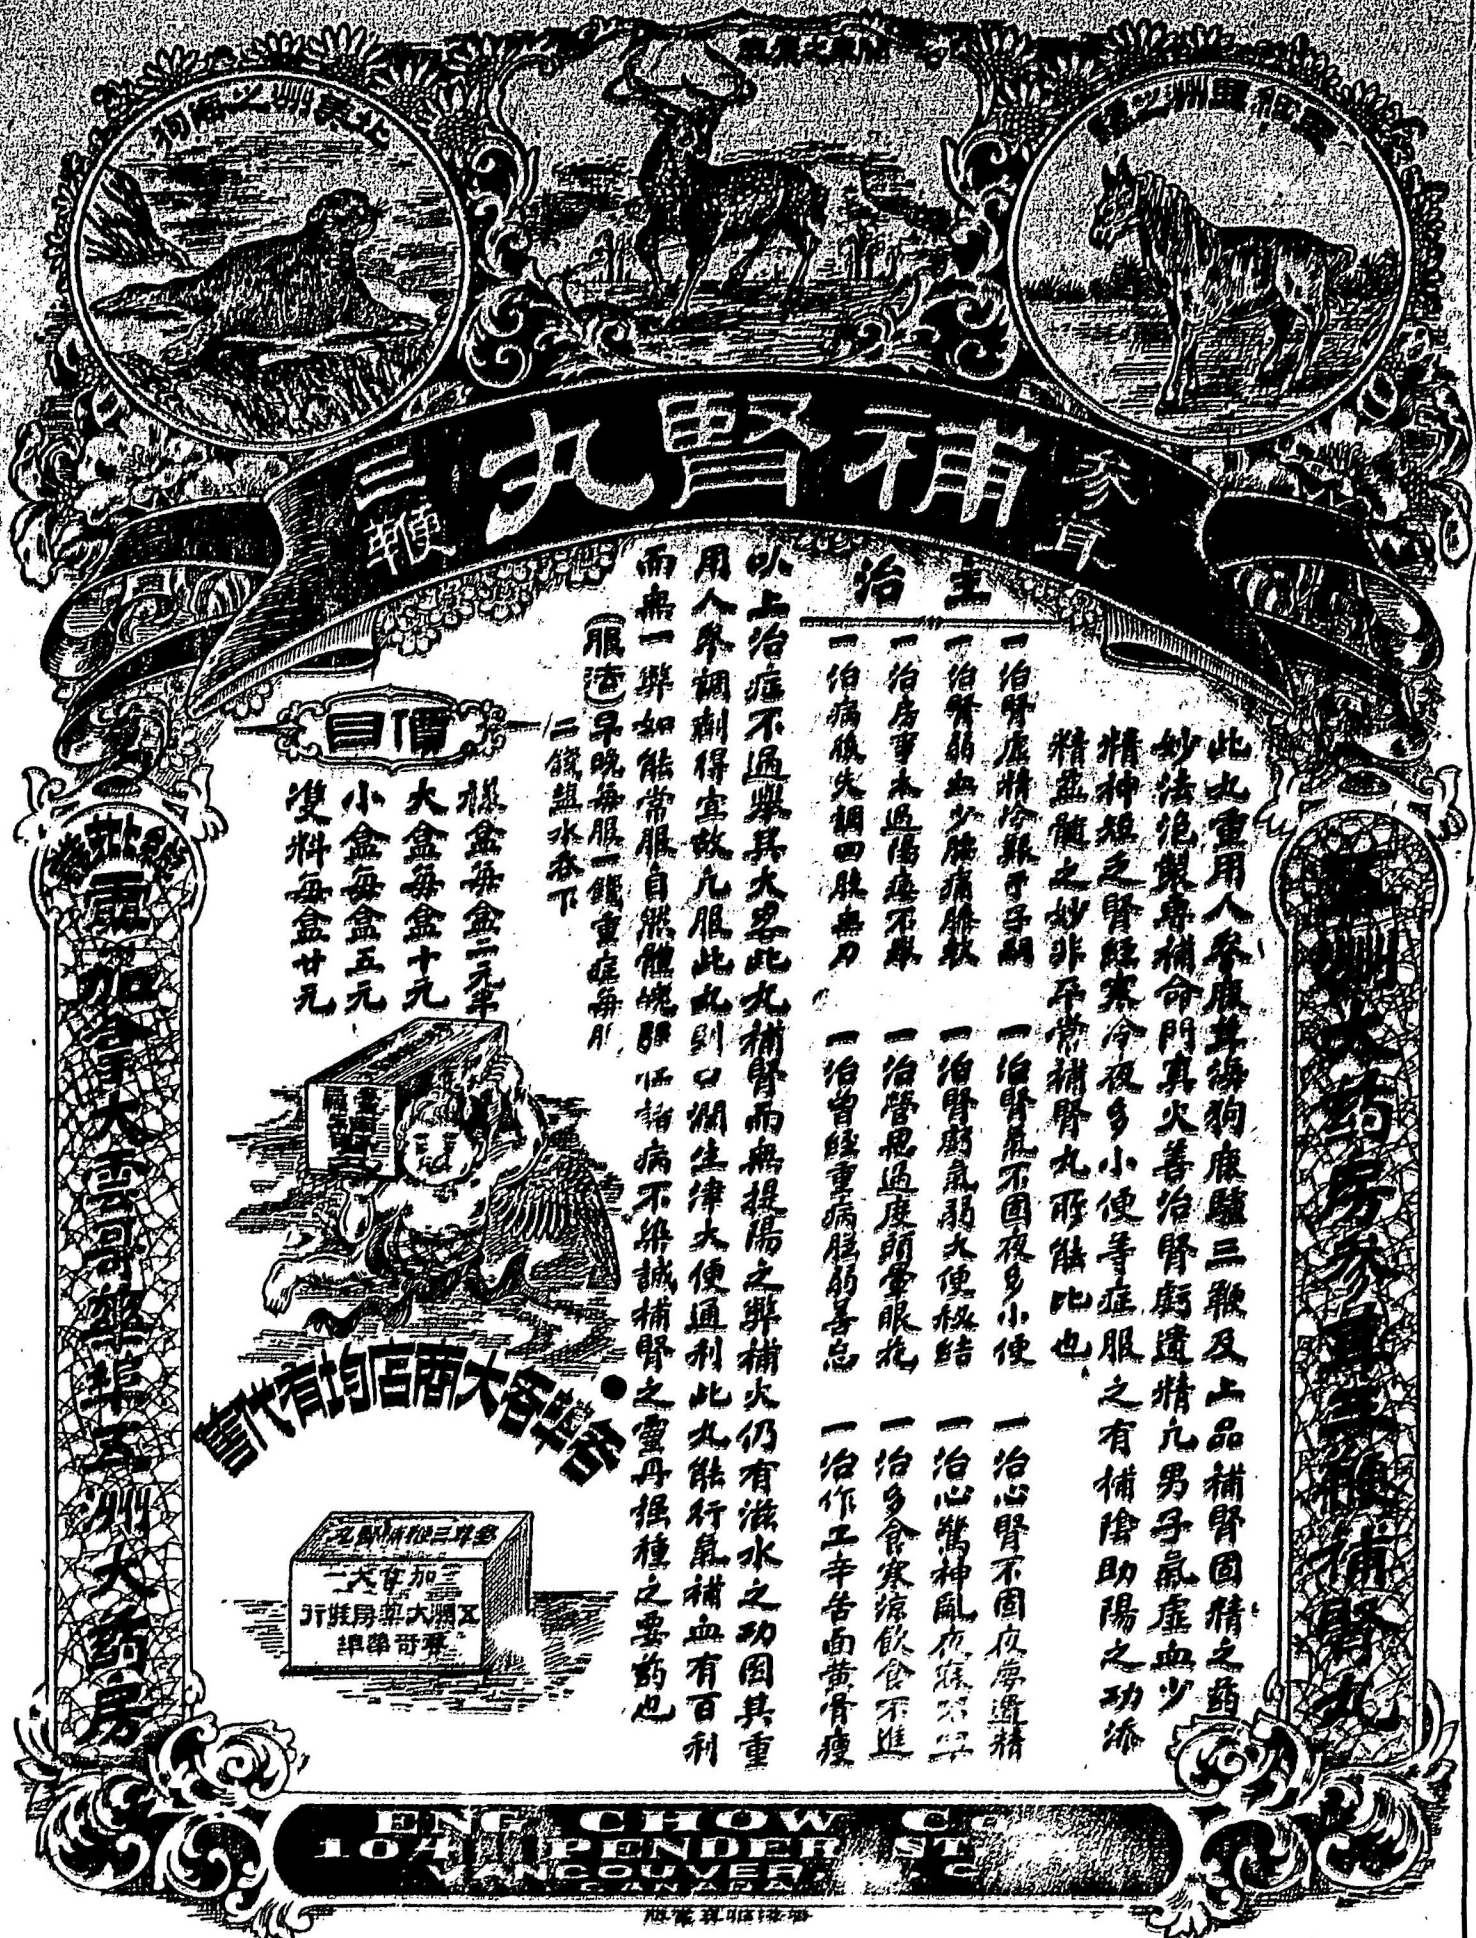 北美洲之海狗
參茸
補腎丸
三鞭
五洲大药房參茸三鞭補腎丸
此丸重用人參鹿茸海狗鹿驢三鞭及上品補腎固精之药
妙法泡製專補命門真火善治腎虧遺精凢男子氣虛血少
精神短乏腎經寒冷夜多小便等症服之有補陰助陽之功添
精益髓之妙非尋常補腎丸所能比也
主治
一治腎虛精冷艱于子嗣
一治腎氣不固夜多小便
一治心腎不固夜夢遺精
一治腎弱血少腰痛脚軟
一治腎虧氣弱大便秘結
一治心驚神亂夜寐不
一治房事太過陽痿不舉
一治營思過度頭暈眼花
一治多食寒涼飲食不進
一治病後失調四肢無力
一治曾經重病腦弱善忘
一治作工辛苦面黄骨瘦
以上治症不過舉其大畧此丸補腎而無提陽之弊補火仍有滋水之功因其重
用人參調劑得宜故凢服此丸則口潤生津大便通利此丸能行氣補血有百利
而無一弊如能常服自然體魄強 諸病不染誠補腎之靈丹種之要药也
(服法)早晚每服一錢重症每服
二錢盐水吞下
價目
樣盒每盒二元半
大盒每盒十元
小盒每盒五元
雙料每盒廿元
各埠各大商店均有代售
參茸三鞭補腎丸
加拿大
五洲大藥房

雲哥華埠
加拿大雲哥華埠五洲大药房
ENG CHOW
104 PENDER ST
VANCOUVER
CANADA